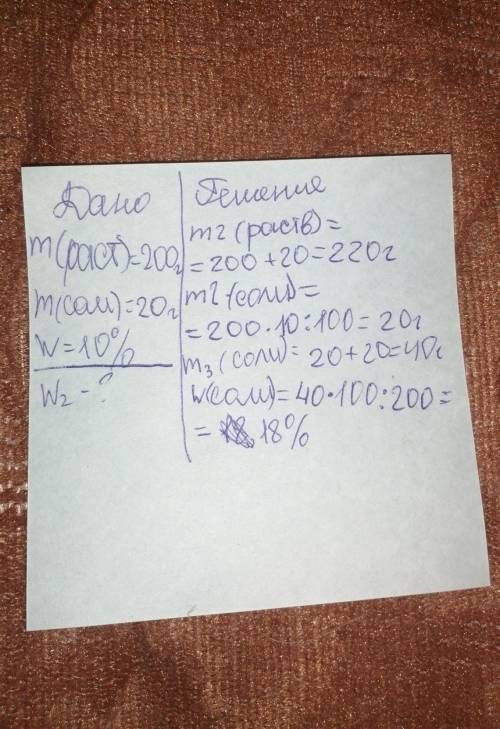 Дано
m(раст)=200г
m(соли)=20г
W=10%
W2-?
Решение
m2(раств)=
=200+20=220г
m2(соли)=
=200·10:100=20г
m3(соли)=20+20=40г
W(соли)=40·100:200=
= 18%